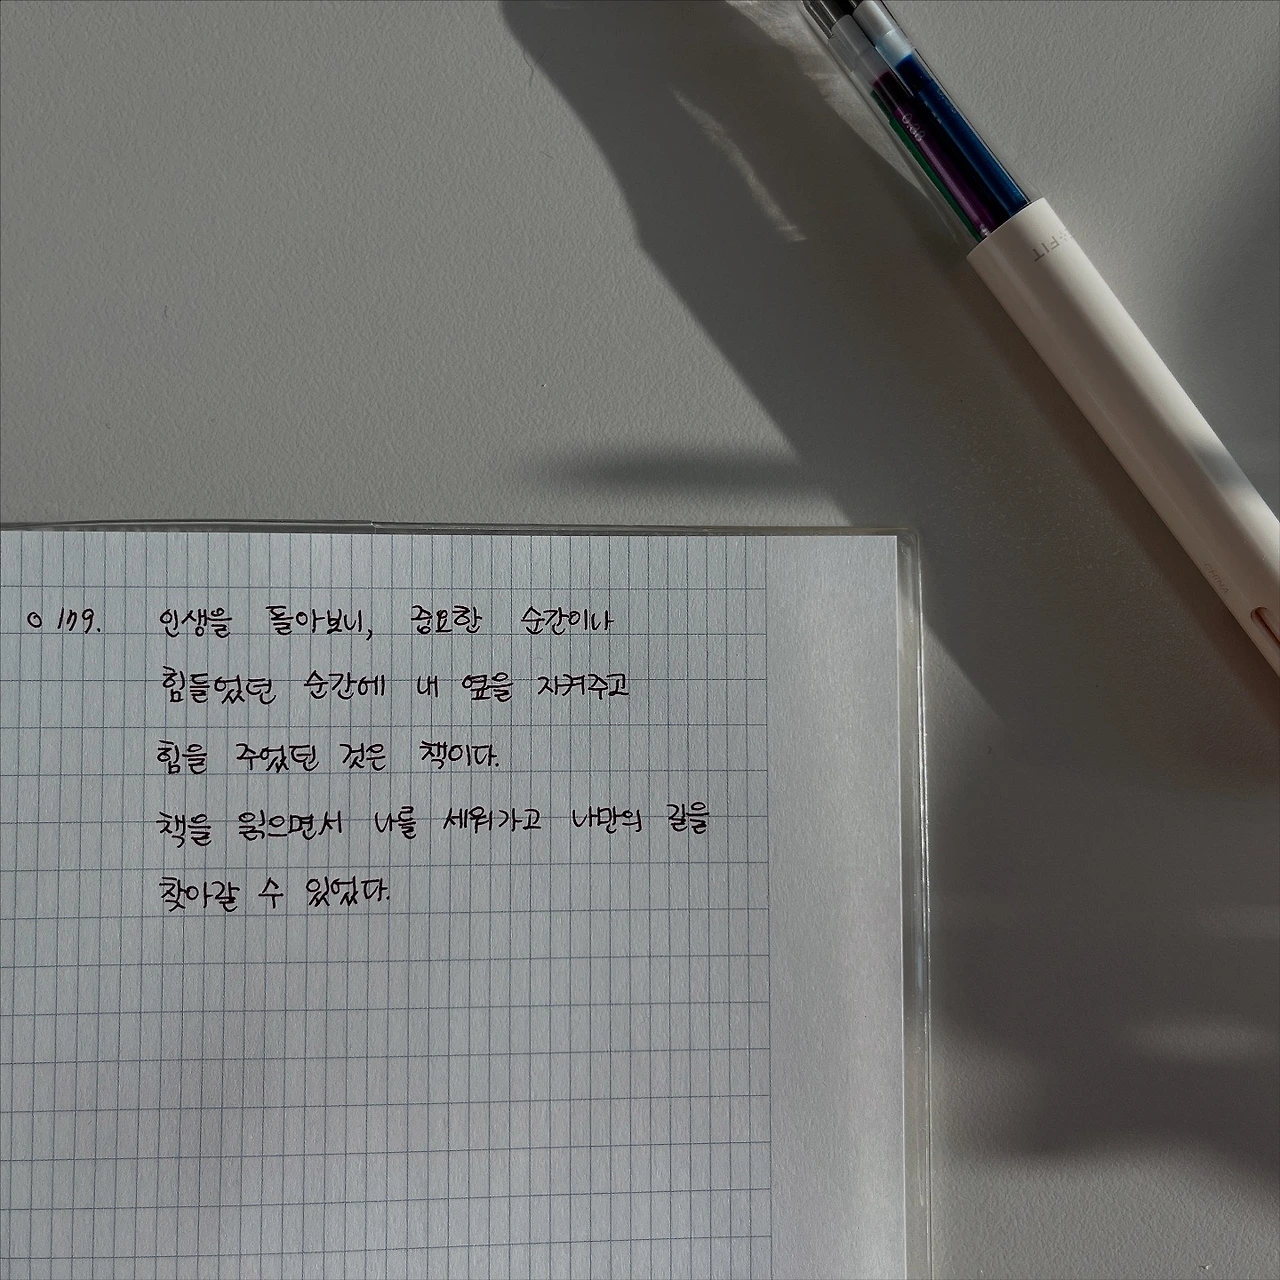 0.38
FIT
CHINA
○ 179. 인생을 돌아보니, 중요한 순간이나
힘들었던 순간에 내 옆을 지켜주고
힘을 주었던 것은 책이다.
책을 읽으면서 나를 세워가고 나만의 길을
찾아갈 수 있었다.